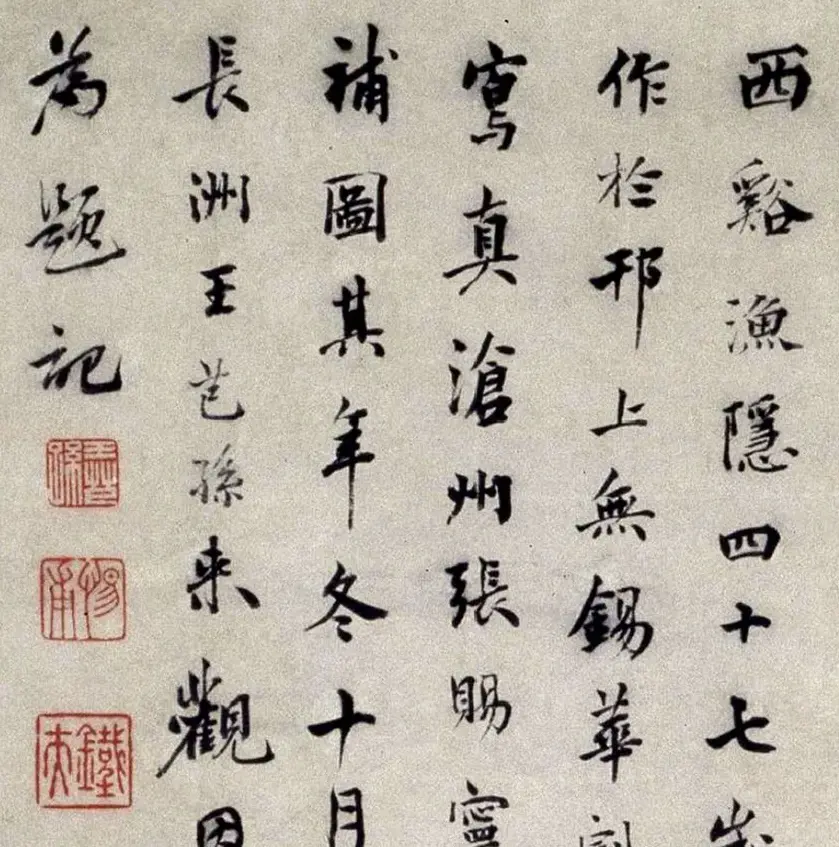 西谿漁隱四十七歲
作於邗上無錫華
寫真滄州張賜寧
補圖其年冬十月
長洲王芑孫來觀因
為題記
惕甫
鐵夫